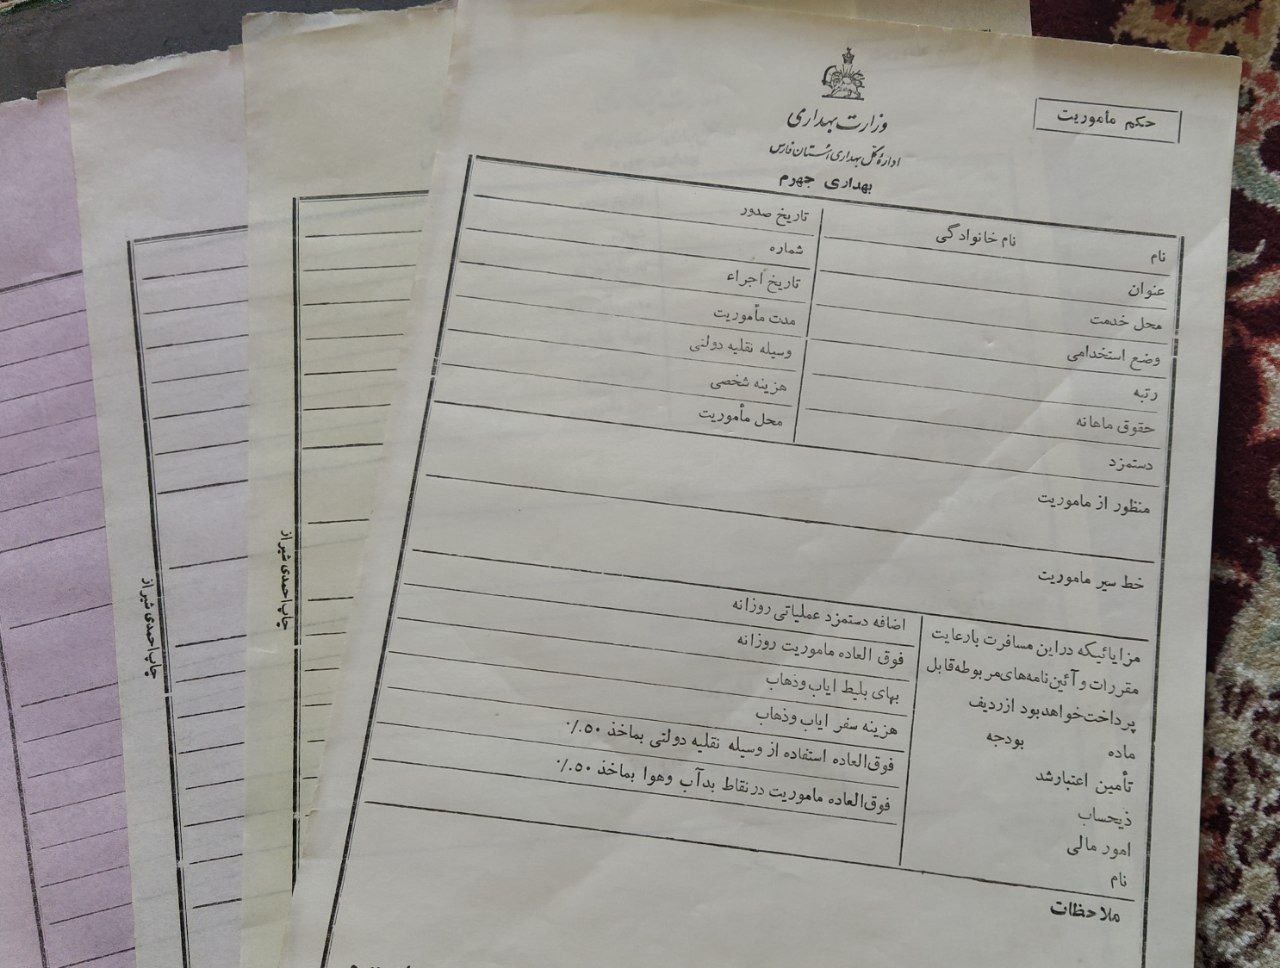 حکم مأموریت
وزارت بهداری
اداره کل بهداری استان فارس
بهداری جهرم
نام
نام خانوادگی
تاریخ صدور
عنوان
شماره
محل خدمت
تاریخ اجراء
وضع استخدامی
مدت مأموریت
رتبه
وسیله نقلیه دولتی
حقوق ماهانه
هزینه شخصی
دستمزد
محل مأموریت
منظور از ماموریت
خط سیر ماموریت
مزایائیکه در این مسافرت بارعایت
مقررات و آئین نامه‌های مربوطه قابل
پرداخت خواهد بود از ردیف
ماده
بودجه
تأمین اعتبار شد
ذیحساب
امور مالی
نام
اضافه دستمزد عملیاتی روزانه
فوق العاده ماموریت روزانه
بهای بلیط ایاب و ذهاب
هزینه سفر ایاب و ذهاب
فوق‌العاده استفاده از وسیله نقلیه دولتی بماخذ ۵۰٪
فوق‌العاده ماموریت در نقاط بد آب و هوا بماخذ ۵۰٪
ملاحظات
چاپ احمدی شیراز
چاپ احمدی شیراز